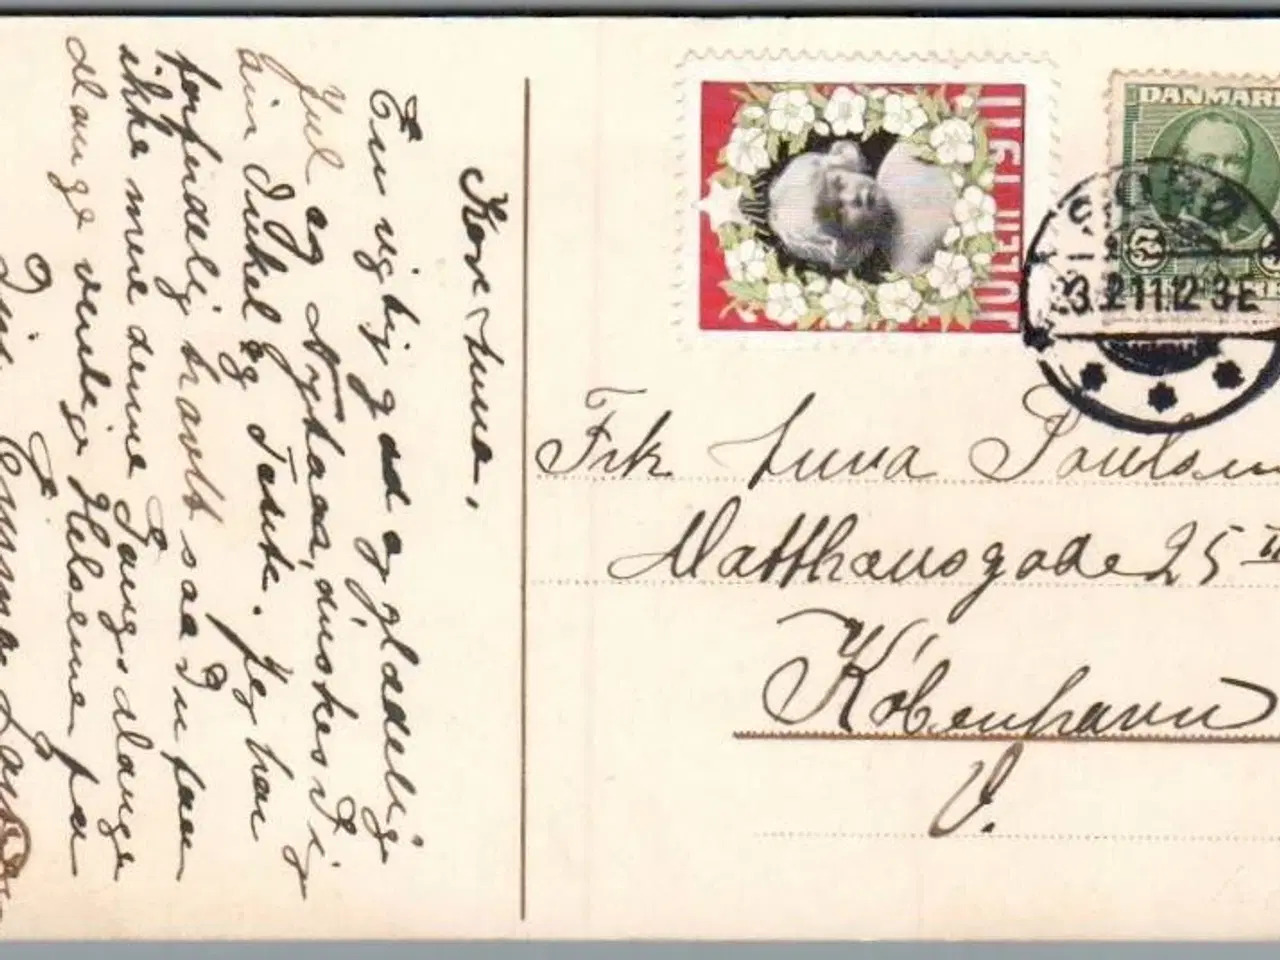 Kære Anna.
En rigtig god og glædelig
Jul og Nytaar, ønskes Dig
din Onkel og Tante. Jeg har
forfærdelig travlt saa Du faar
ikke mere denne Gang, mange
venlige Hilsener fra
Din
JULEN 1911
DANMARK
5
3.12.11 12-3E
Frk Anna Poulsen
Matthæusgade 25
København
V.